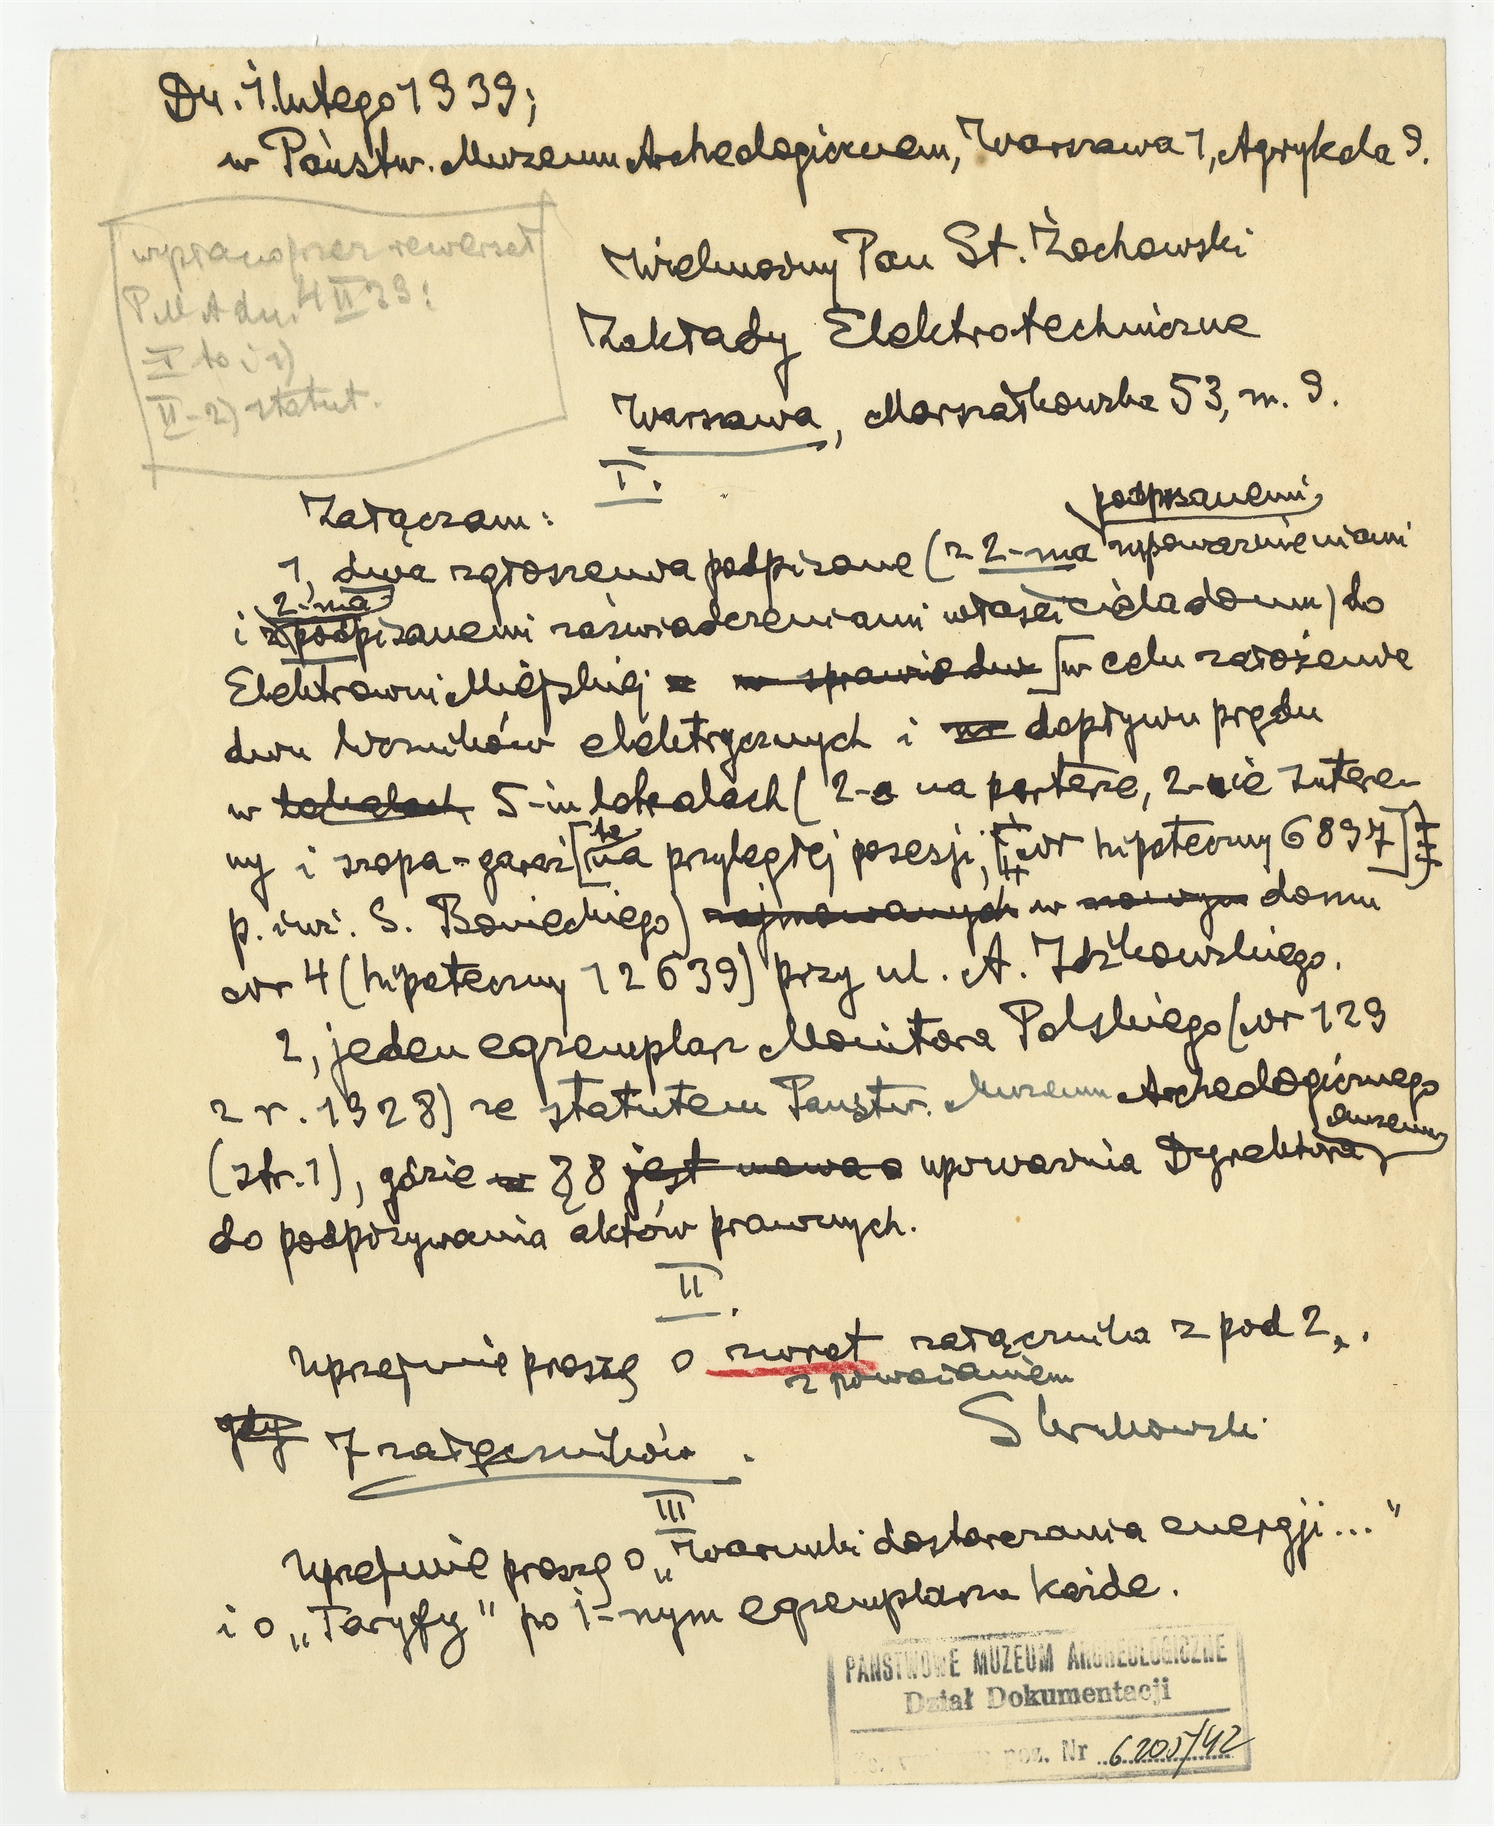 Dn. 1. lutego 1939;
w Państw. Muzeum Archeologicznem, Warszawa 1, Agrykola 9.
wypisano przez rewersał
PMA dn. 4 II 39:
I to i 1)
II - 2) statut.
Wielmożny Pan St. Żochowski
Zakłady Elektrotechniczne
Warszawa, Marszałkowska 53, m. 9.
I.
Załączam:
podpisanemi
1, dwa zgłoszenia podpisane (z 2-ma upoważnieniami
2-ma
i podpisanemi zaświadczeniami właściciela domu) do
Elektrowni Miejskiej w sprawie dwu [w celu założenia
dwu liczników elektrycznych i w dopływu prądu
w lokalach 5-iu lokalach (2-a na parterze, 2-ie sutere-
to
ny i szopa-garaż [na przyległej posesji, [nr hipoteczny 6897]
p. inż. S. Bonieckiego) zajmowanych w nowym domu
nr 4 (hipoteczny 12639) przy ul. A. Idzikowskiego.
2, jeden egzemplarz Monitora Polskiego (nr 129
z r. 1928) ze statutem Państw. Muzeum Archeologicznego
Muzeum
(str. 1), gdzie w § 8 jest mowa o upoważnia Dyrektora
do podpisywania aktów prawnych.
II.
Uprzejmie proszę o zwrot załącznika z pod 2,.
z poważaniem
gdy 7 załączników.
III
Uprzejmie proszę o „Warunki dostarczania energji..."
i o „Taryfy" po 1-nym egzemplarzu każde.
PAŃSTWOWE MUZEUM ARCHEOLOGICZNE
Dział Dokumentacji
poz. Nr 6205/42